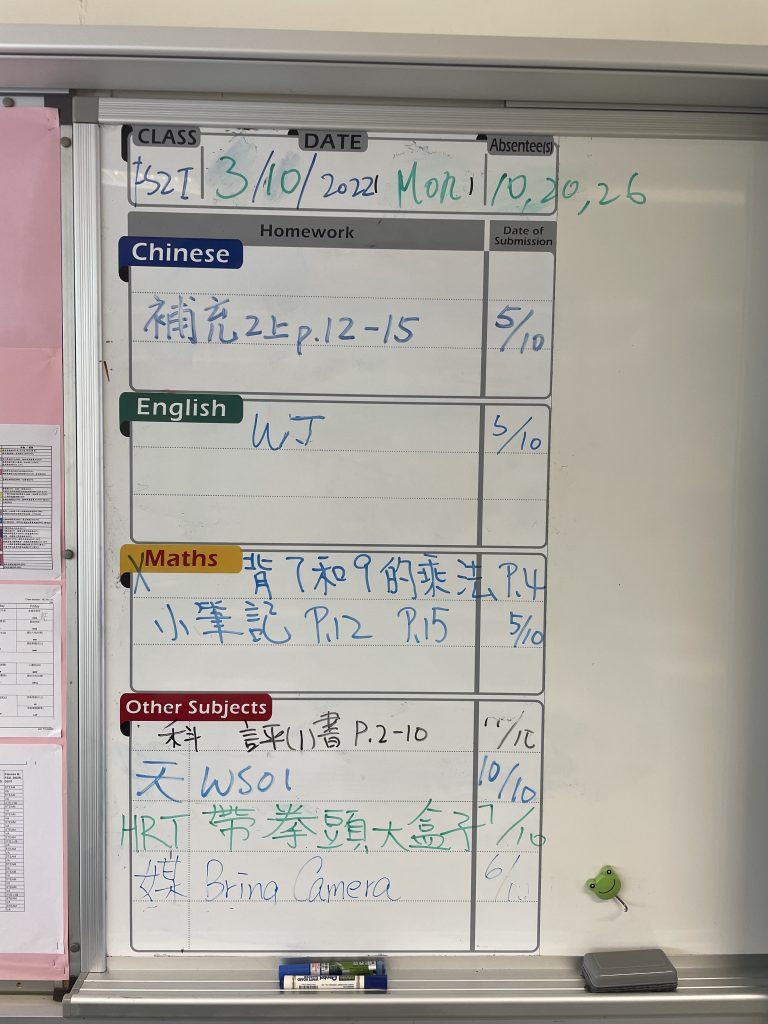 CLASS DATE Absentee(s)
3/10/2022 Mon 10,20,26
Homework Date of Submission
Chinese
補充2上p.12-15 5/10
English
WJ 5/10
Maths
X 背7和9的乘法 P.4
小筆記 P.12 P.15 5/10
Other Subjects
科 評(1)書 P.2-10 /10
天 WS01 10/10
HRT 帶拳頭大盒子 7/10
媒 Bring Camera 6/